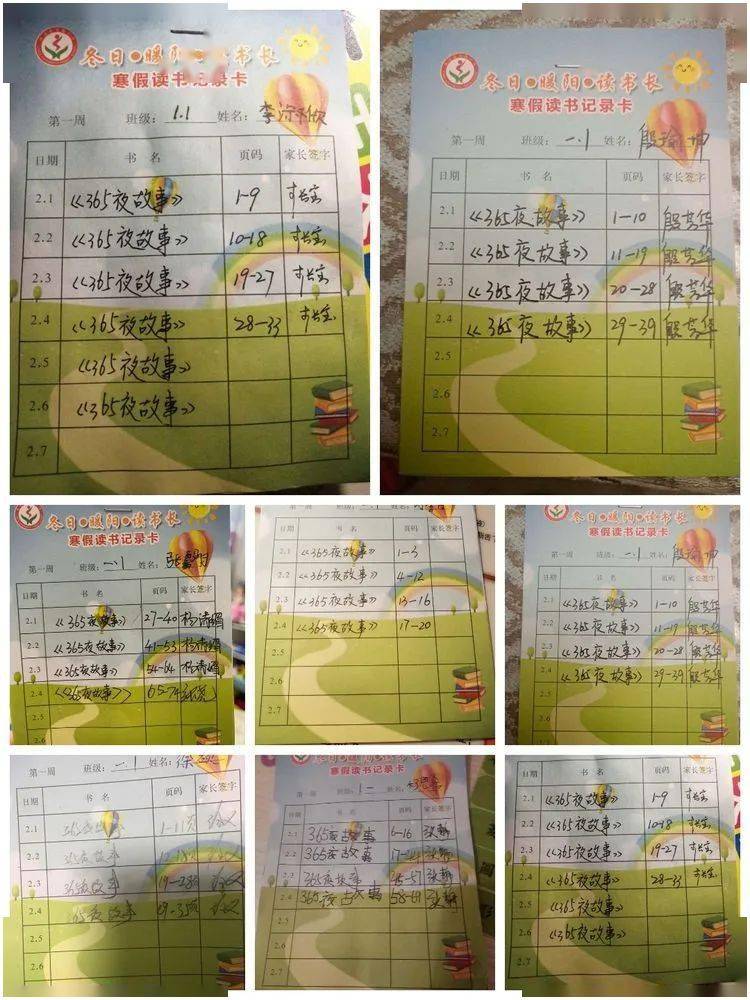 冬日●暖阳●读书长
寒假读书记录卡
第一周 班级：1.1 姓名：李
日期 书名 页码 家长签字
2.1 《365夜故事》 1-9
2.2 《365夜故事》 10-18
2.3 《365夜故事》 19-27
2.4 《365夜故事》 28-33
2.5 《365夜故事》
2.6 《365夜故事》
2.7
冬日●暖阳●读书长
寒假读书记录卡
第一周 班级：一.1 姓名：殷瑜坤
日期 书名 页码 家长签字
2.1 《365夜故事》 1-10 殷芳华
2.2 《365夜故事》 11-19 殷芳华
2.3 《365夜故事》 20-28 殷芳华
2.4 《365夜故事》 29-39 殷芳华
2.5
2.6
2.7
冬日●暖阳●读书长
寒假读书记录卡
第一周 班级：一.1 姓名：
日期 书名 页码 家长签字
2.1 《365夜故事》 27-40
2.2 《365夜故事》 41-53
2.3 《365夜故事》 54-64
2.4 《365夜故事》 65-74
2.5
日期 书名 页码 家长签字
2.1 《365夜故事》 1-3
2.2 《365夜故事》 4-12
2.3 《365夜故事》 13-16
2.4 《365夜故事》 17-20
2.5
2.6
2.7
冬日●暖阳●读书长
寒假读书记录卡
第一周 班级：一.1 姓名：殷瑜坤
日期 书名 页码 家长签字
2.1 《365夜故事》 1-10 殷芳华
2.2 《365夜故事》 11-19 殷芳华
2.3 《365夜故事》 20-28 殷芳华
2.4 《365夜故事》 29-39 殷芳华
2.5
2.6
第一周 班级：一.1 姓名：徐
日期 书名 页码 家长签字
2.1 365夜故事
2.2 365夜故事
2.3 365夜故事
2.4 365夜故事
2.5
2.6
冬日●暖阳●读书长
寒假读书记录卡
第一周 班级： 姓名：
日期 书名 页码 家长签字
2.1 365夜故事 6-16
2.2 365夜故事
2.3 365夜故事
2.4 365夜故事
2.5
2.6
2.7
日期 书名 页码 家长签字
2.1 《365夜故事》 1-9
2.2 《365夜故事》 10-18
2.3 《365夜故事》 19-27
2.4 《365夜故事》 28-33
2.5 《365夜故事》
2.6 《365夜故事》
2.7